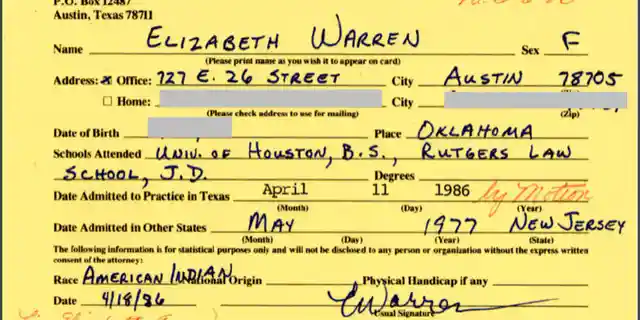 P.O. Box 12487
Austin, Texas 78711
Name ELIZABETH WARREN Sex F
(Please print name as you wish it to appear on card)
Address: Office: 727 E. 26 STREET City AUSTIN 78705
Home: City
(Please check address to use for mailing) (Zip)
Date of Birth Place OKLAHOMA
Schools Attended UNIV. OF HOUSTON, B.S., RUTGERS LAW
SCHOOL, J.D. Degrees
Date Admitted to Practice in Texas April 11 1986 by Motion
(Month) (Day) (Year)
Date Admitted in Other States MAY 1977 NEW JERSEY
(Month) (Day) (Year) (State)
The following information is for statistical purposes only and will not be disclosed to any person or organization without the express written
consent of the attorney:
Race AMERICAN INDIAN National Origin Physical Handicap if any
Date 4/18/86 EWarren
Usual Signature